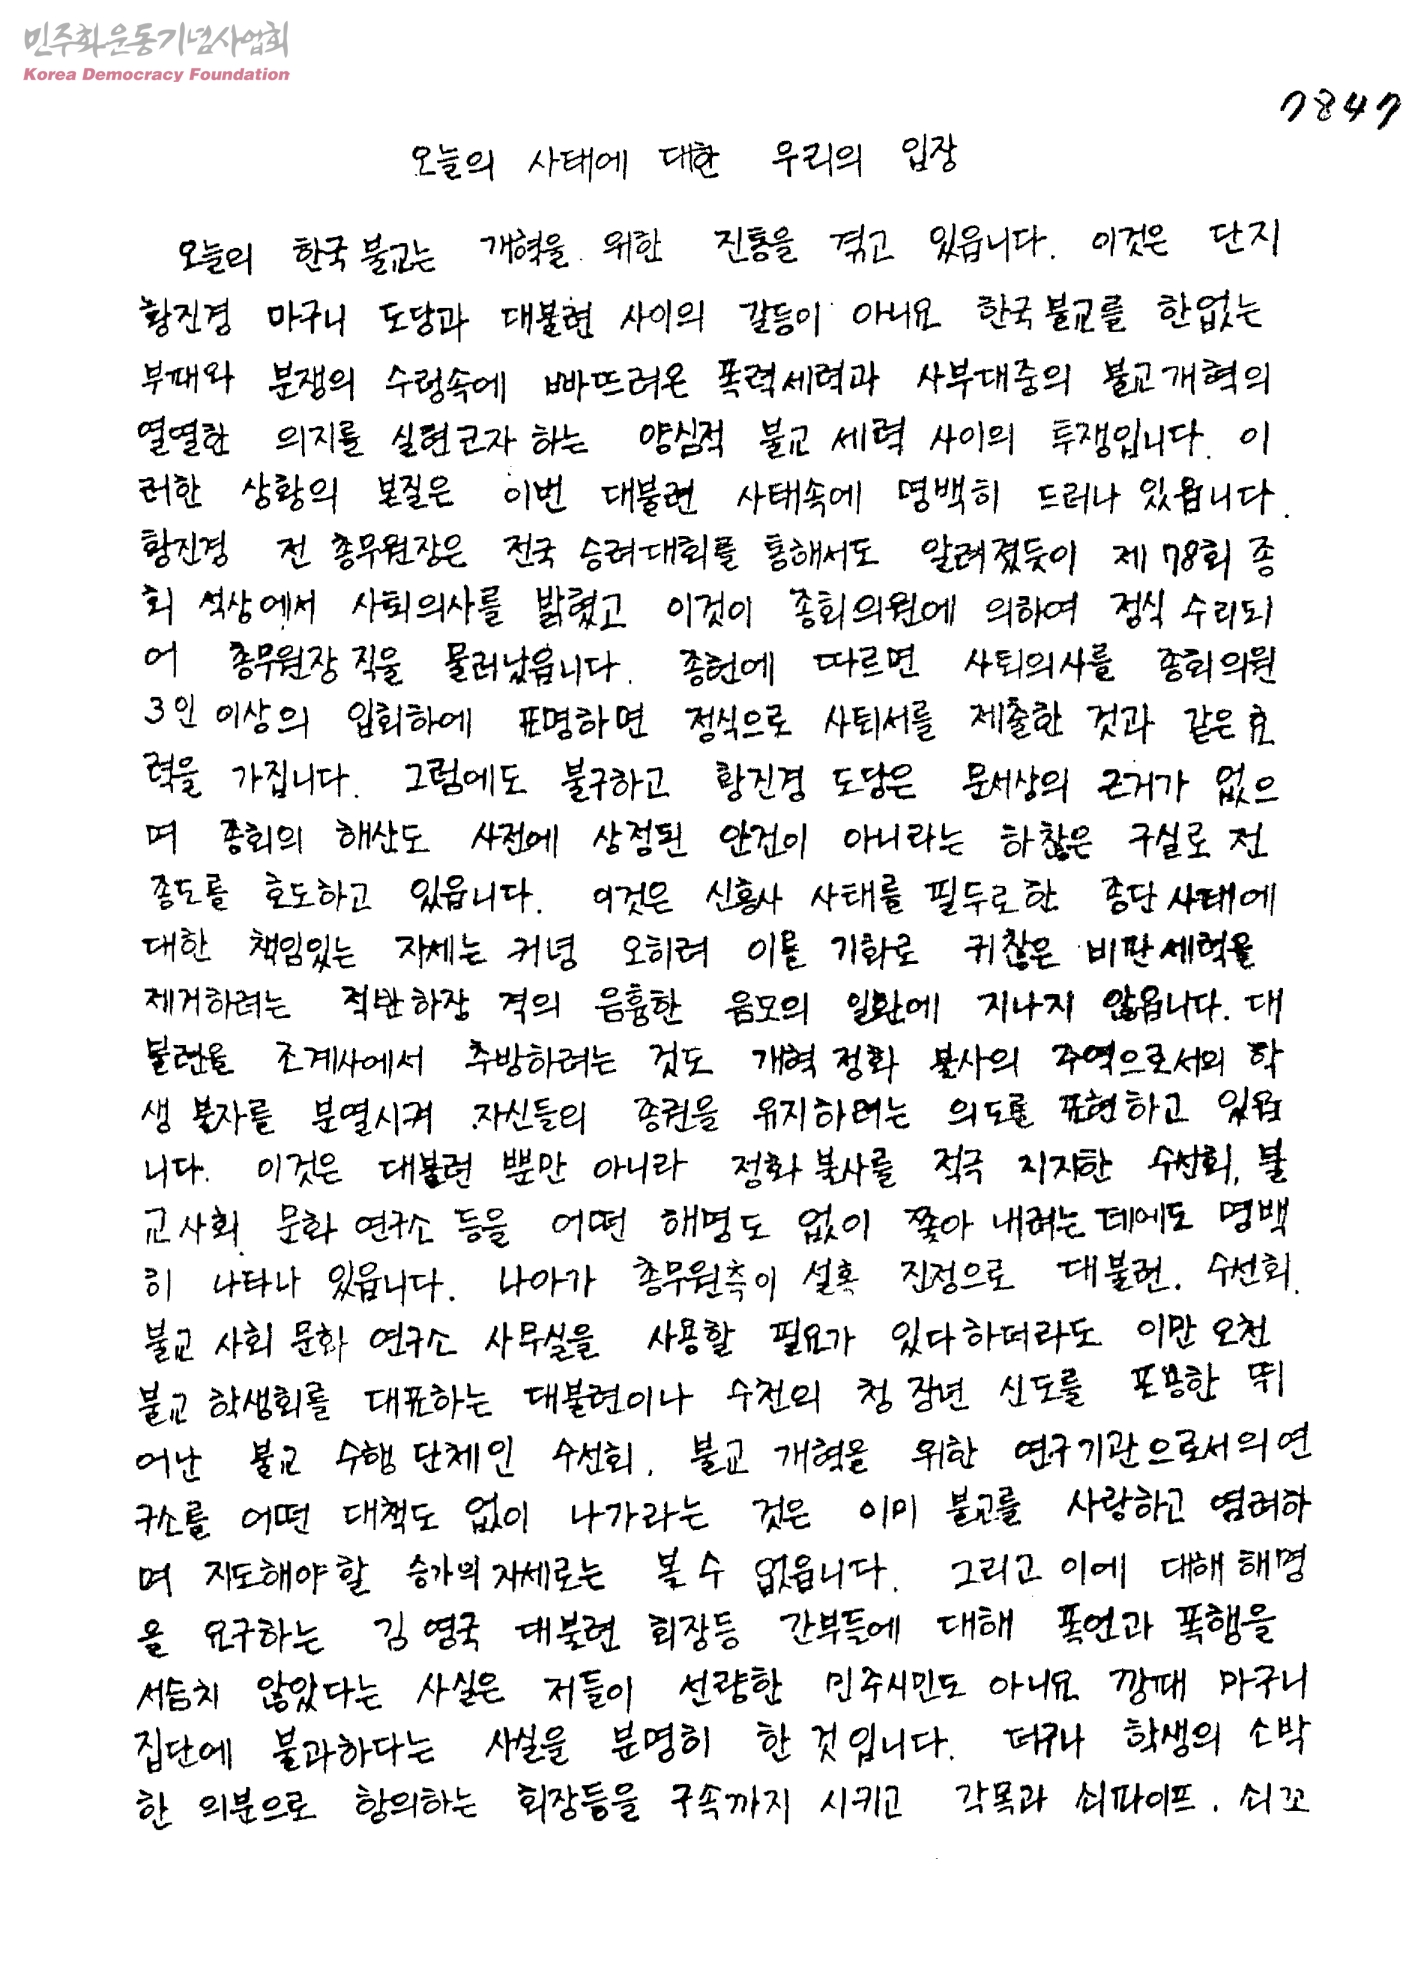 민주화운동기념사업회
Korea Democracy Foundation
7847
오늘의 사태에 대한 우리의 입장
오늘의 한국 불교는 개혁을 위한 진통을 겪고 있읍니다. 이것은 단지
황진경 마구니 도당과 대불련 사이의 갈등이 아니요 한국 불교를 한없는
부패와 분쟁의 수렁속에 빠뜨려온 폭력세력과 사부대중의 불교개혁의
열열한 의지를 실현코자 하는 양심적 불교 세력 사이의 투쟁입니다. 이
러한 상황의 본질은 이번 대불련 사태속에 명백히 드러나 있읍니다.
황진경 전 총무원장은 전국 승려대회를 통해서도 알려졌듯이 제 78회 종
회 석상에서 사퇴의사를 밝혔고 이것이 종회의원에 의하여 정식 수리되
어 총무원장 직을 물러났읍니다. 종헌에 따르면 사퇴의사를 종회의원
3인 이상의 입회하에 표명하면 정식으로 사퇴서를 제출한 것과 같은 효
력을 가집니다. 그럼에도 불구하고 황진경 도당은 문서상의 근거가 없으
며 종회의 해산도 사전에 상정된 안건이 아니라는 하찮은 구실로 전
종도를 호도하고 있읍니다. 이것은 신흥사 사태를 필두로한 종단 사태에
대한 책임있는 자세는 커녕 오히려 이를 기화로 귀찮은 비판 세력을
제거하려는 적반하장 격의 음흉한 음모의 일환에 지나지 않읍니다. 대
불련을 조계사에서 추방하려는 것도 개혁 정화 불사의 주역으로서의 학
생 불자를 분열시켜 자신들의 종권을 유지하려는 의도를 표현하고 있읍
니다. 이것은 대불련 뿐만 아니라 정화 불사를 적극 지지한 수선회, 불
교사회 문화 연구소 등을 어떤 해명도 없이 쫓아 내려는 데에도 명백
히 나타나 있읍니다. 나아가 총무원측이 설혹 진정으로 대불련, 수선회,
불교 사회 문화 연구소 사무실을 사용할 필요가 있다하더라도 이만 오천
불교 학생회를 대표하는 대불련이나 수천의 청 장년 신도를 포용한 뛰
어난 불교 수행 단체인 수선회, 불교 개혁을 위한 연구기관으로서의 연
구소를 어떤 대책도 없이 나가라는 것은 이미 불교를 사랑하고 염려하
며 지도해야할 승가의 자세로는 볼 수 없읍니다. 그리고 이에 대해 해명
을 요구하는 김 영국 대불련 회장등 간부들에 대해 폭언과 폭행을
서슴치 않았다는 사실은 저들이 선량한 민주시민도 아니요 깡패 마구니
집단에 불과하다는 사실을 분명히 한 것입니다. 더구나 학생의 소박
한 의분으로 항의하는 회장등을 구속까지 시키고 각목과 쇠파이프, 쇠꼬